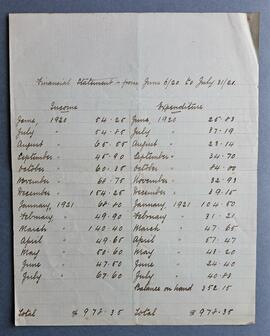 Financial Statement - from June 6/20 to July 31/21.
Income Expenditure
June, 1920 54.25 June, 1920 25.83
July " 54.85 July " 37.19
August " 65.55 August " 23.14
September " 45.90 September " 34.70
October " 60.35 October " 84.00
November " 68.75 November " 32.93
December " 154.25 December " 39.15
January, 1921 68.80 January, 1921 104.50
February " 49.90 February " 31.21
March " 140.40 March " 47.65
April " 49.65 April " 57.47
May " 50.60 May " 43.20
June " 47.50 June " 24.40
July " 67.60 July " 40.83
Balance on hand 352.15
Total $ 978.35 Total $ 978.35